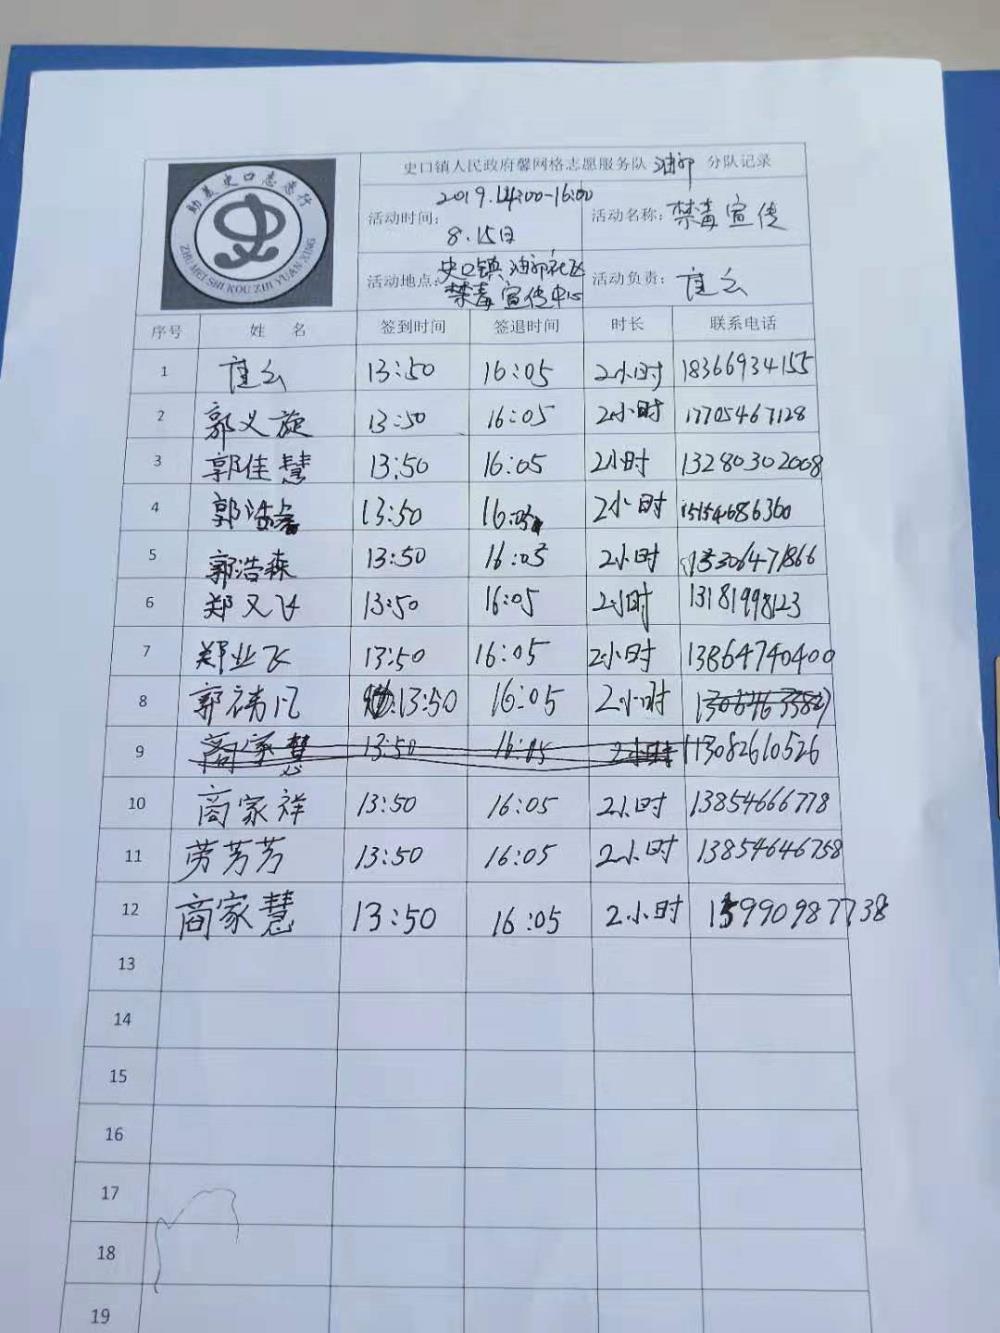 助美史口志愿行
ZHU MEI SHI KOU ZHI YUAN XING
史口镇人民政府馨网格志愿服务队 油郭 分队记录
活动时间: 2019. 14:00-16:00
8.15日
活动名称: 禁毒宣传
活动地点: 史口镇油郭社区
禁毒宣传中心
活动负责:
序号 姓 名 签到时间 签退时间 时长 联系电话
1 13:50 16:05 2小时 18366934155
2 郭义旋 13:50 16:05 2小时 17705467128
3 郭佳慧 13:50 16:05 2小时 13280302008
4 郭浩 13:50 16:05 2小时 15154686360
5 郭浩森 13:50 16:05 2小时 15306471866
6 郑又飞 13:50 16:05 2小时 13181998123
7 郑业飞 13:50 16:05 2小时 13864740400
8 郭祎凡 13:50 16:05 2小时
9 商家慧 13:50 16:05 2小时 13082610526
10 商家祥 13:50 16:05 2小时 13854666778
11 劳芳芳 13:50 16:05 2小时 13854646758
12 商家慧 13:50 16:05 2小时 15990987738
13
14
15
16
17
18
19